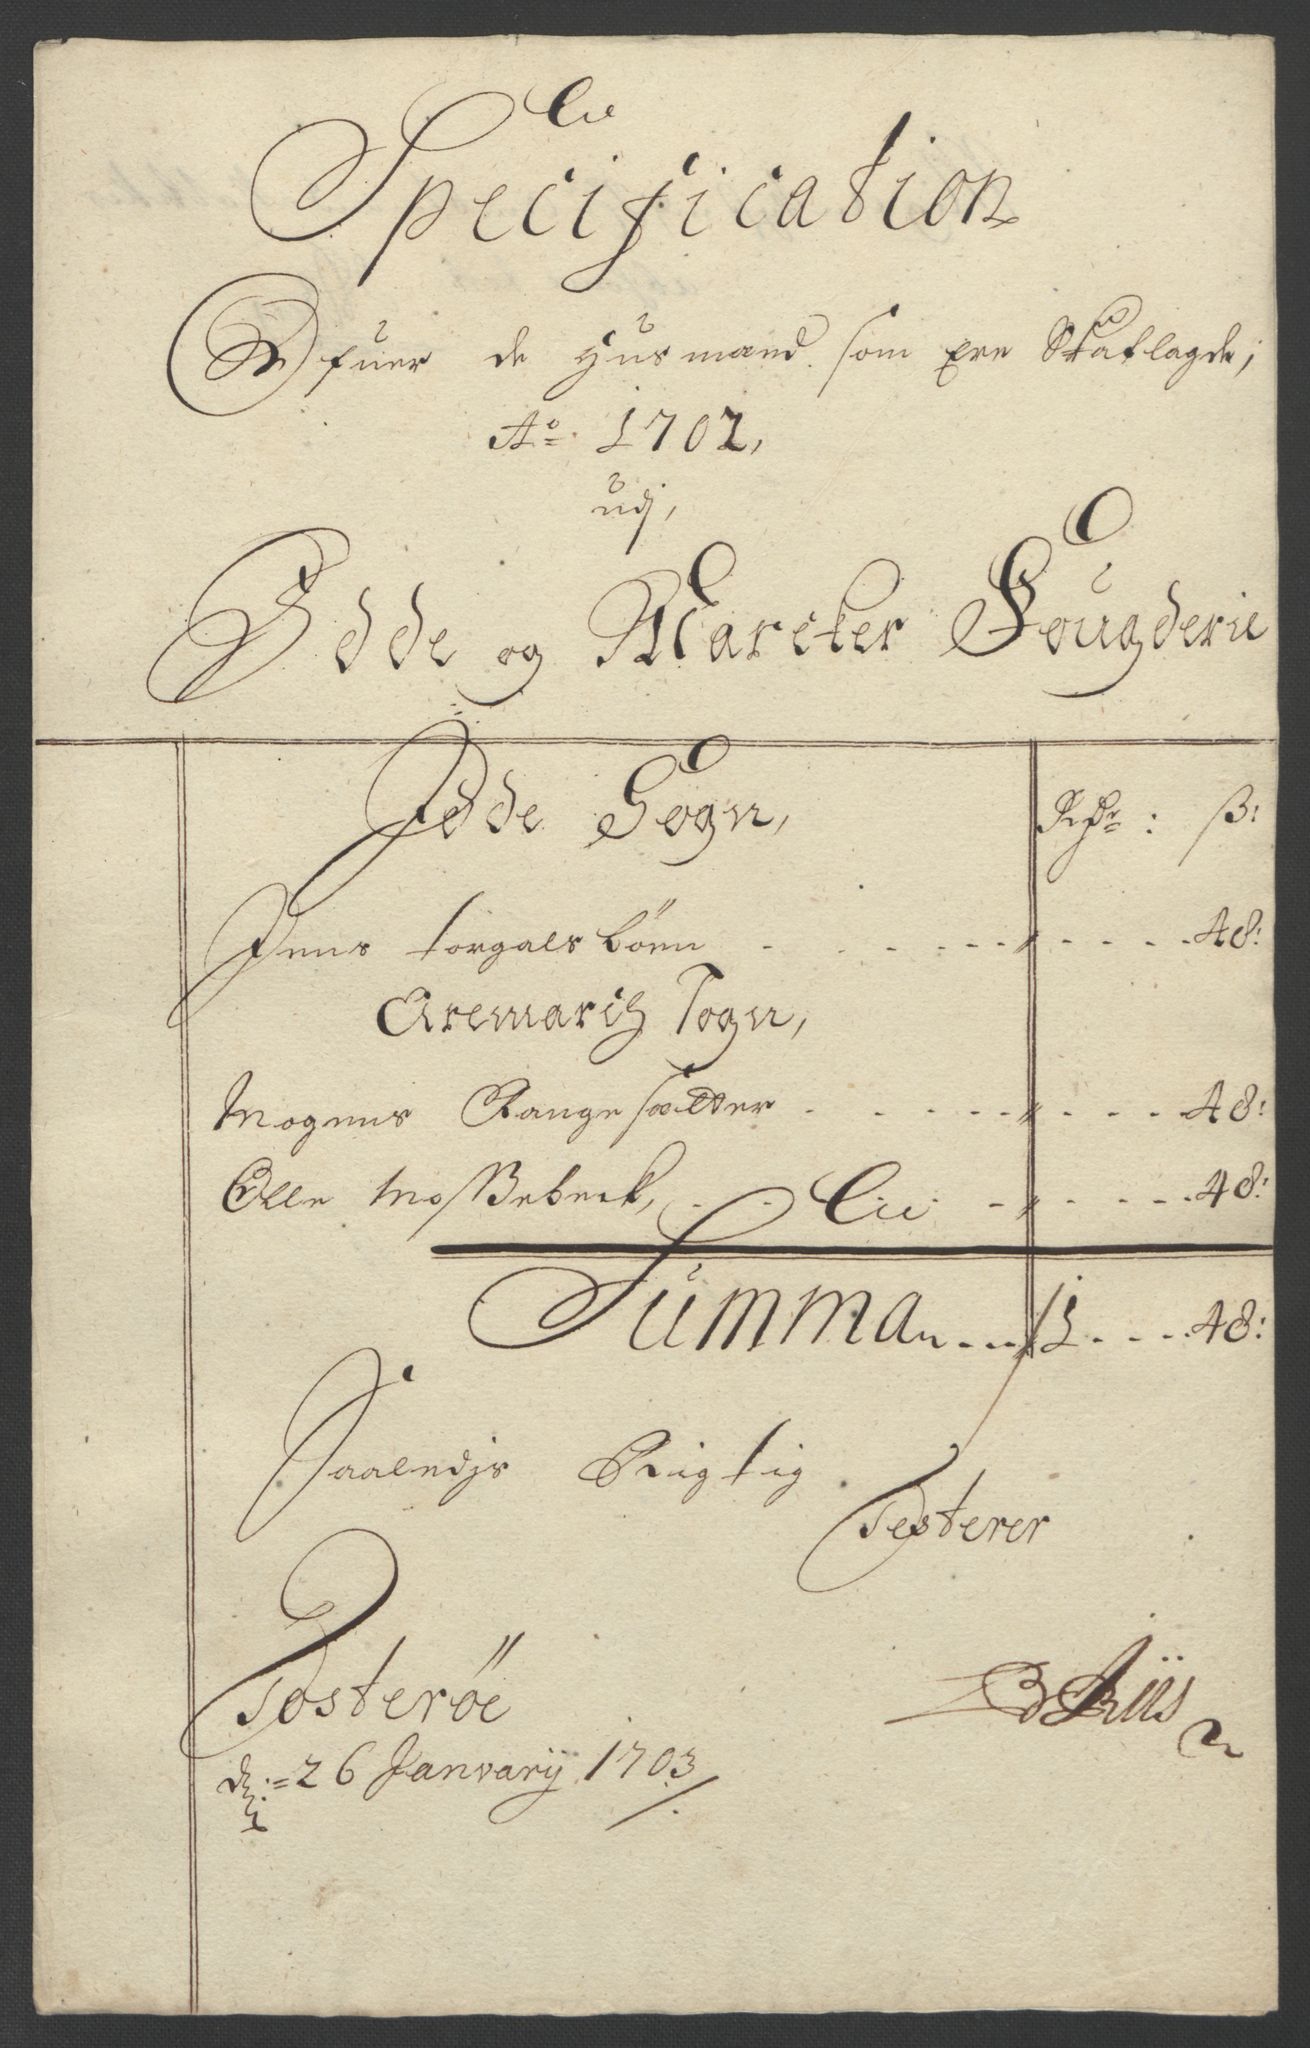 Specification
Ofuer de Husmænd som ere Skatlagde;
Ao 1702,
udj,
Idde og Marcker Fougderie
Idde Sogn, Rdr: ß:
Jens torgals böen 48:
Aremarch Sogn,
Mogens Rangesætter 48:
Olle Moßebeck, 48:
Summa 1 48:
Saaledis Rigtig
Testerer
Tosteröe
d: 26 Janvarij 1703